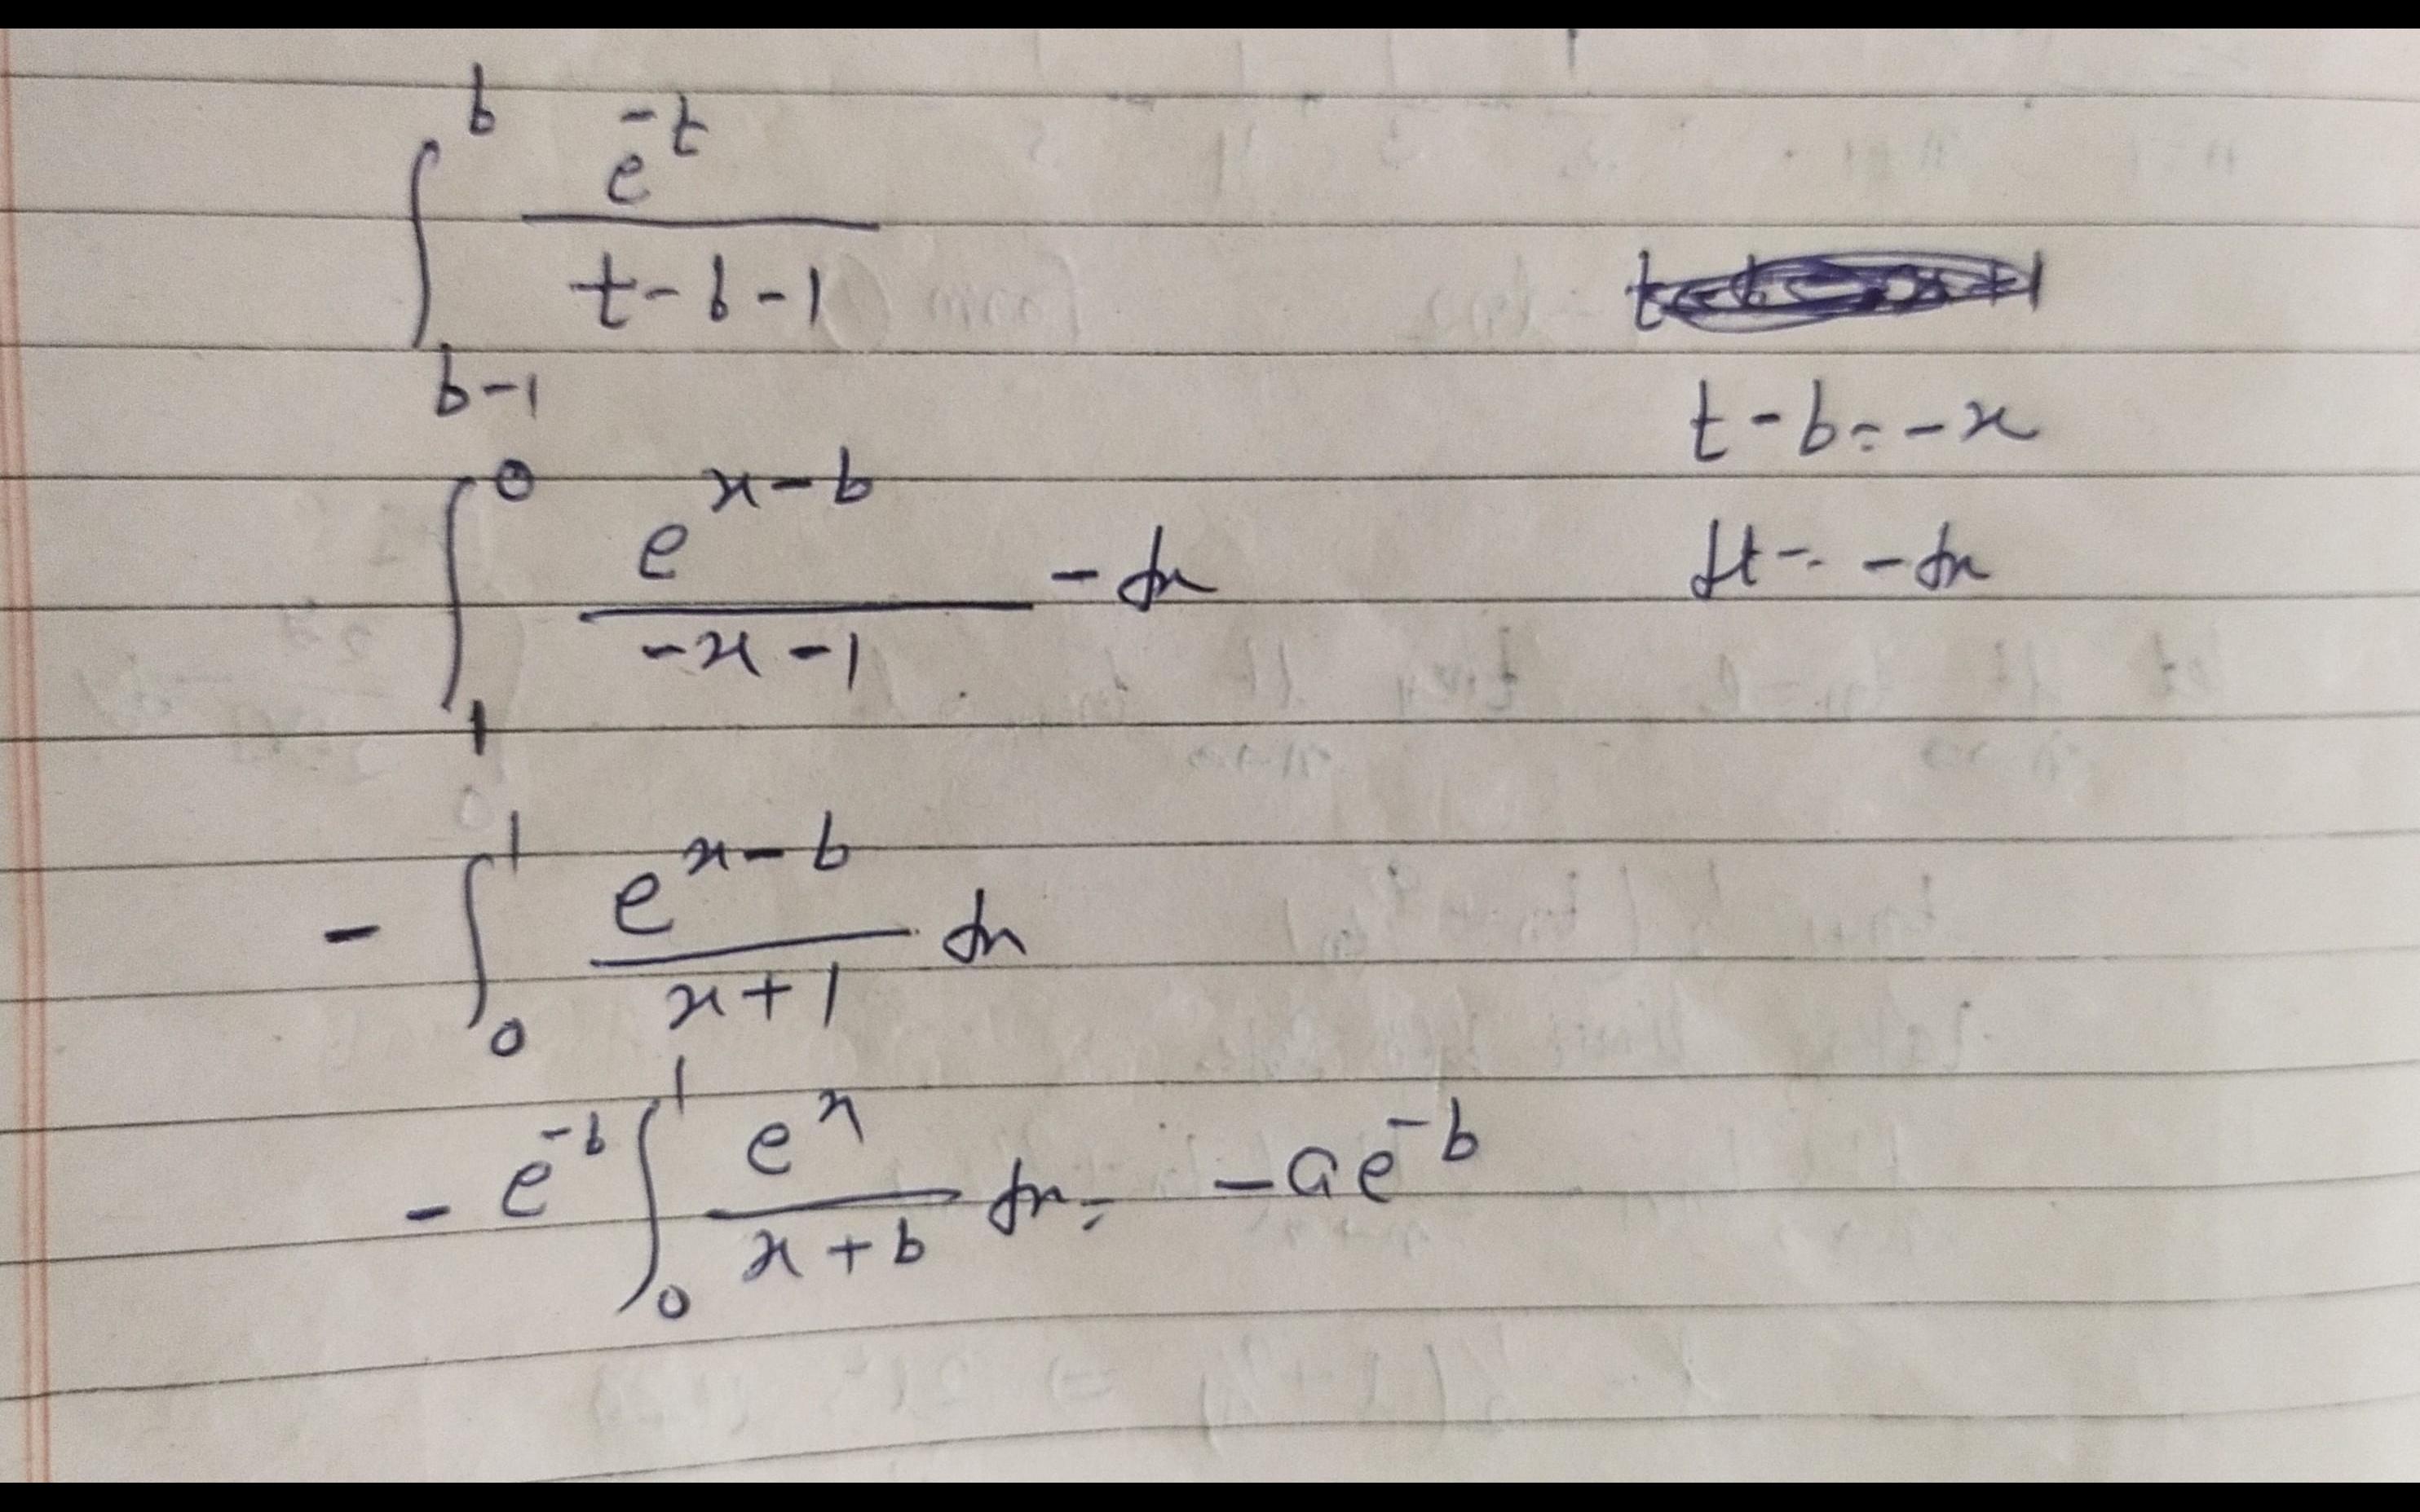 ∫_{b-1}^{b} e^{-t} / (t-b-1)
t-b = -x
∫_{1}^{0} e^{x-b} / (-x-1) -dx
dt = -dx
- ∫_{0}^{1} e^{x-b} / (x+1) dx
- e^{-b} ∫_{0}^{1} e^{x} / (x+b) dx = -ae^{-b}